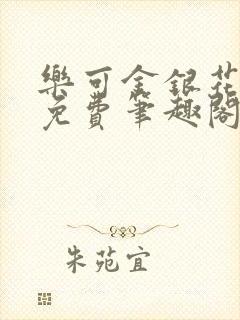 樂可金銀花
免費筆趣閣
朱苑宜